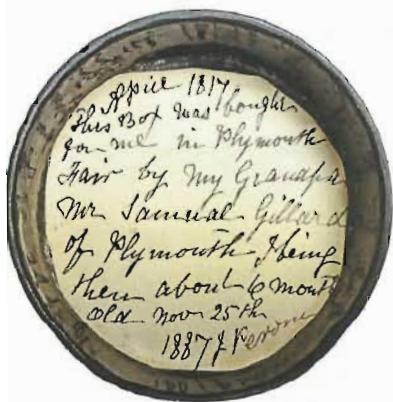 April 1817
This Box was bought
for me in Plymouth
Fair by my Grandpa
Mr Samual Gillard
of Plymouth I being
then about 6 month
old Nov 25th
1887 J